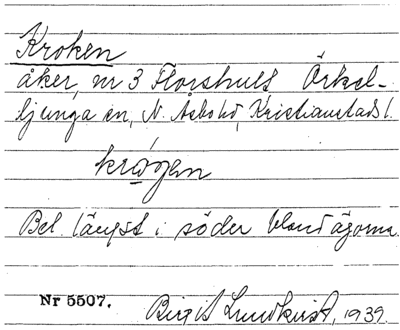 Kroken
åker, nr 3 Florshult Örkel-
ljunga sn, N. Åsbo hd, Kristianstads l.
krǫgen
Bel. längst i söder bland ägorna
Nr 5507.
Birgit Lundkvist, 1939.